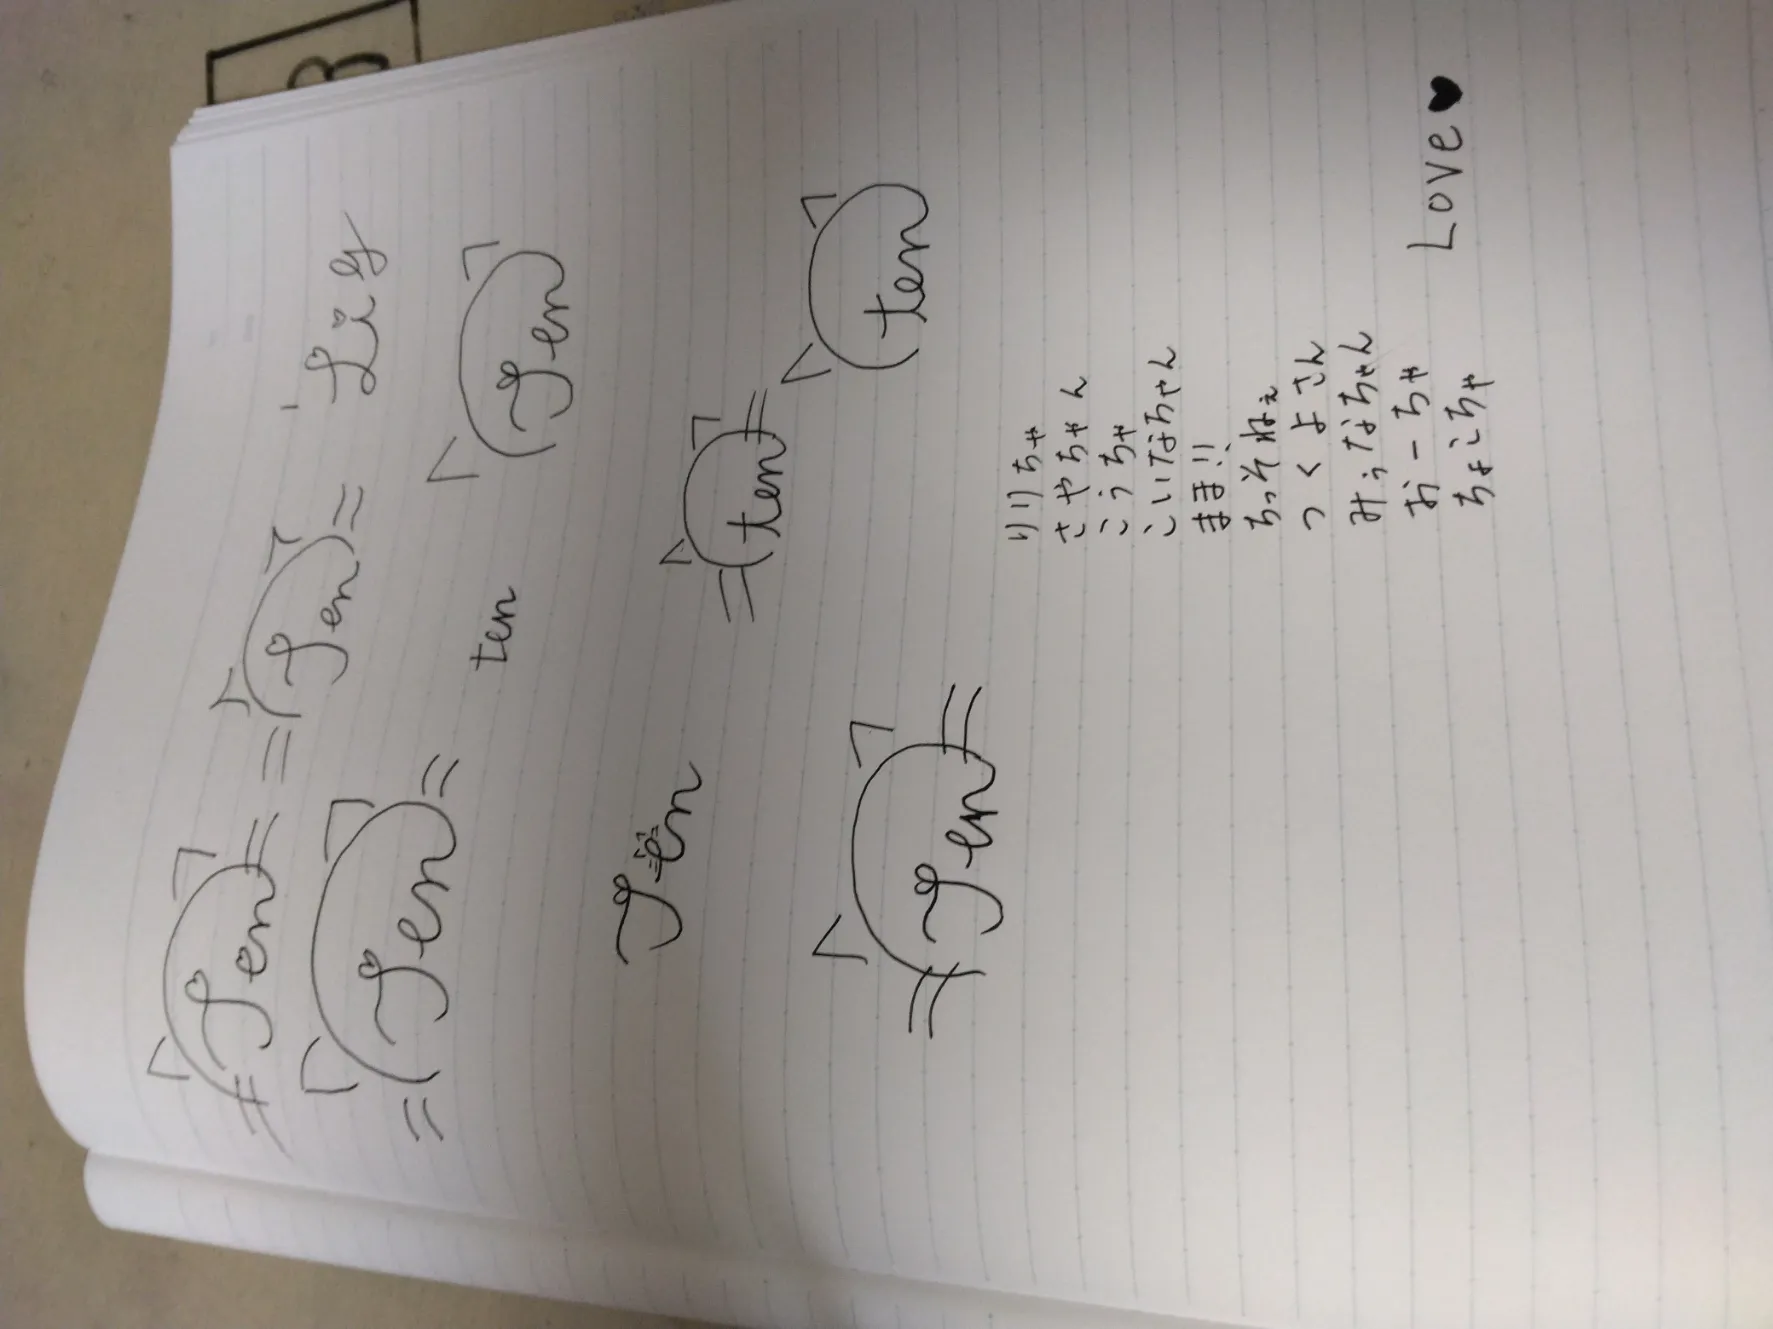 Ten
Ten
Liy
Ten
ten
Ten
Ten
ten
Ten
ten
りりちゃ
さやちゃん
こうちゃ
こいなちゃん
まま!!
ちっそねぇ
つくよさん
みぅなちゃん
おーちゃ
ちょこちゃ
Love♥